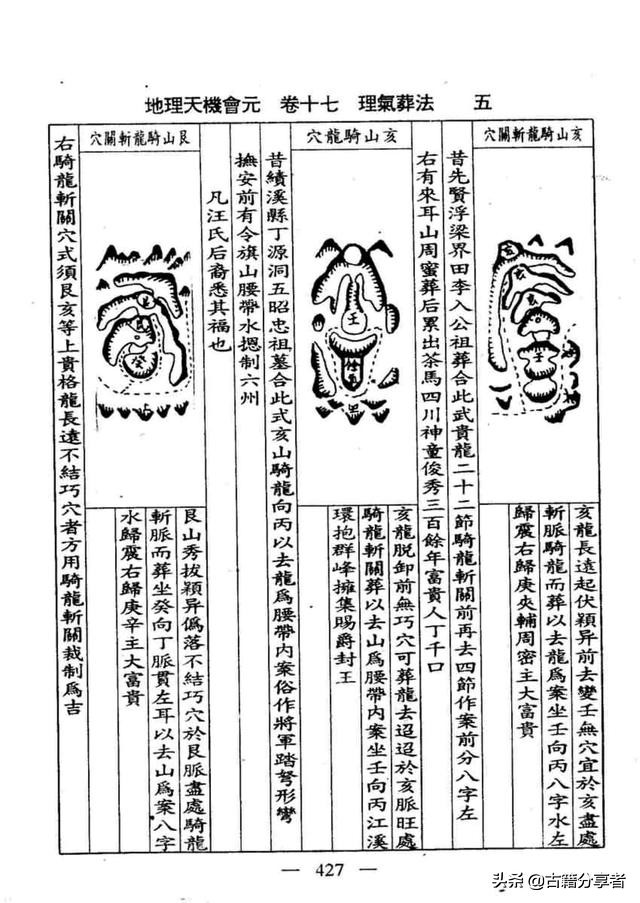 地理天機會元　卷十七　理氣葬法　五
亥山騎龍斬關穴
亥龍長遠起伏穎异前去變壬無穴宜於亥盡處
斬脈騎龍而葬以去龍爲案坐壬向丙八字水左
歸震右歸庚夾輔周密主大富貴
昔先賢浮梁界田李入公祖葬合此武貴龍二十二節騎龍斬關前再去四節作案前分八字左
右有來耳山周蜜葬后累出茶馬四川神童俊秀三百餘年富貴人丁千口
亥山騎龍穴
壬
亥龍脱卸前無巧穴可葬龍去迢迢於亥脈旺處
騎龍斬關葬以去山爲腰帶内案坐壬向丙江溪
環抱群峰擁集賜爵封王
昔績溪縣丁源洞五昭忠祖墓合此式亥山騎龍向丙以去龍爲腰帶内案俗作將軍踏弩形彎
撫安前有令旗山腰帶水摁制六州
凡汪氏后裔悉其福也
艮山騎龍斬關穴
癸
艮山秀拔穎异僞落不結巧穴於艮脈盡處騎龍
斬脈而葬坐癸向丁脈貫左耳以去山爲案八字
水歸震右歸庚辛主大富貴
右騎龍斬關穴式須艮亥等上貴格龍長遠不結巧穴者方用騎龍斬關裁制爲吉
— 427 —
头条 @古籍分享者